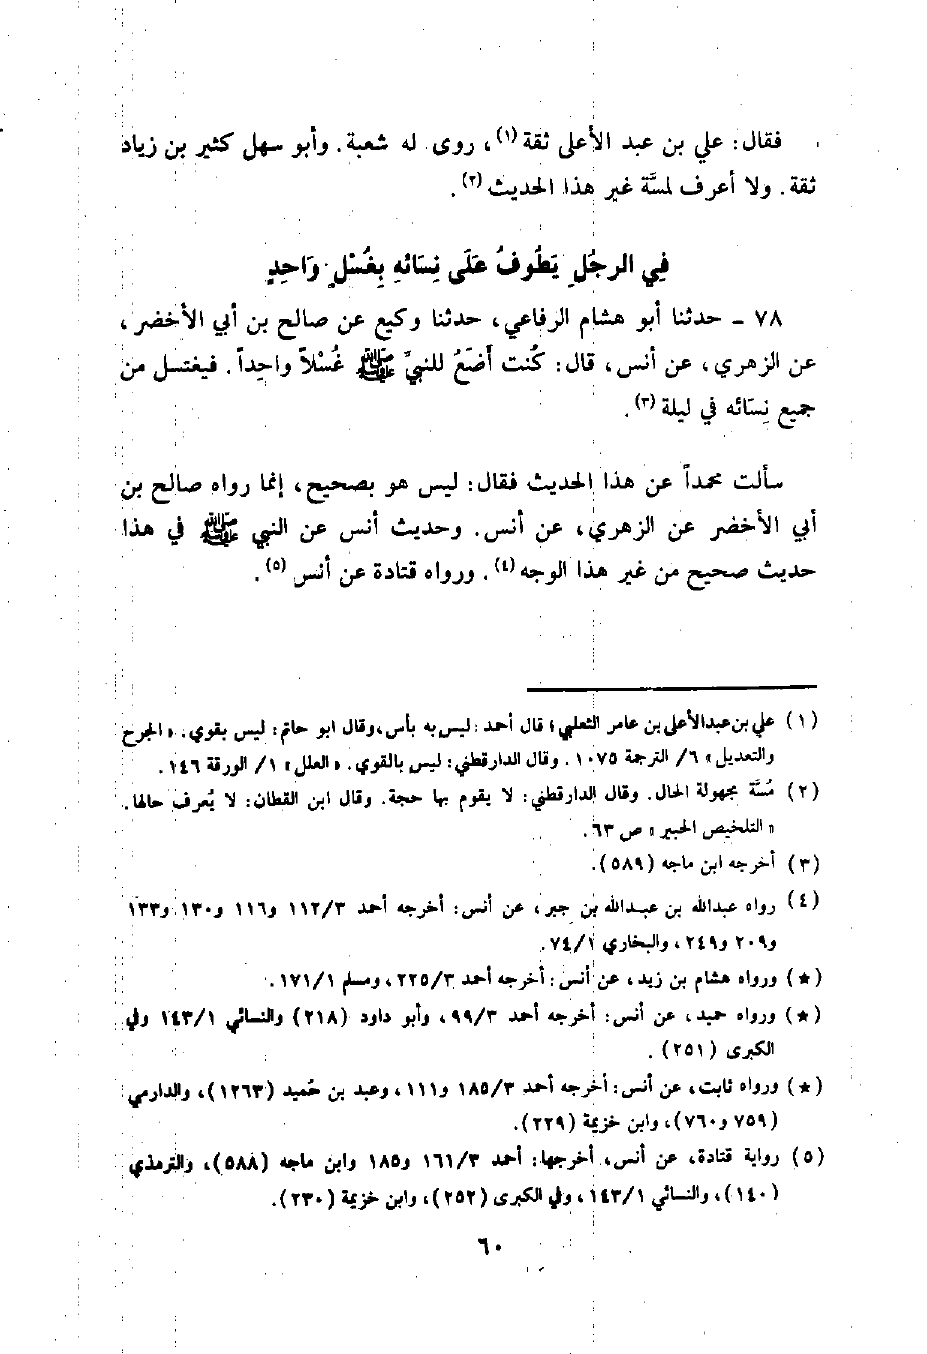 فقال: علي بن عبد الأعلى ثقة (١)، روى له شعبة. وأبو سهل كثير بن زياد
ثقة. ولا أعرف لمسَّة غير هذا الحديث (٢).
فِي الرجُلِ يَطُوفُ عَلَى نِسَائهِ بِغُسْلٍ وَاحِدٍ
٧٨ - حدثنا أبو هشام الرفاعي، حدثنا وكيع عن صالح بن أبي الأخضر،
عن الزهري، عن أنس، قال: كُنت أَضَعُ للنبيِّ ﷺ غُسْلاً واحِداً. فيغتسل من
جميع نِسَائه في ليلة (٣).
سألت محمداً عن هذا الحديث فقال: ليس هو بصحيح، إنما رواه صالح بن
أبي الأخضر عن الزهري، عن أنس. وحديث أنس عن النبي ﷺ في هذا
حديث صحيح من غير هذا الوجه (٤). ورواه قتادة عن أنس (٥).
(١) علي بن عبدالأعلى بن عامر الثعلبي؛ قال أحمد: ليس به بأس، وقال ابو حاتم: ليس بقوي. «الجرح
والتعديل» ٦/ الترجمة ١٠٧٥. وقال الدارقطني: ليس بالقوي. «العلل» ١/ الورقة ١٤٦.
(٢) مُسَّة مجهولة الحال. وقال الدارقطني: لا يقوم بها حجة. وقال ابن القطان: لا يُعرف حالها.
«التلخيص الحبير» ص ٦٣.
(٣) أخرجه ابن ماجه (٥٨٩).
(٤) رواه عبدالله بن عبدالله بن جبر، عن أنس: أخرجه أحمد ١١٢/٣ و١١٦ و١٣٠ و١٣٣
و٢٠٩ و٢٤٩، والبخاري ٧٤/١.
(★) ورواه هشام بن زيد، عن أنس: أخرجه أحمد ٢٢٥/٣، ومسلم ١٧١/١.
(★) ورواه حميد، عن أنس: أخرجه أحمد ٩٩/٣، وأبو داود (٢١٨) والنسائي ١٤٣/١ وفي
الكبرى (٢٥١).
(★) ورواه ثابت، عن أنس: أخرجه أحمد ١٨٥/٣ و١١١، وعبد بن حُميد (١٢٦٣)، والدارمي
(٧٥٩ و٧٦٠)، وابن خزيمة (٢٢٩).
(٥) رواية قتادة، عن أنس، أخرجها: أحمد ١٦١/٣ و١٨٥ وابن ماجه (٥٨٨)، والترمذي
(١٤٠)، والنسائي ١٤٣/١، وفي الكبرى (٢٥٢)، وابن خزيمة (٢٣٠).
٦٠